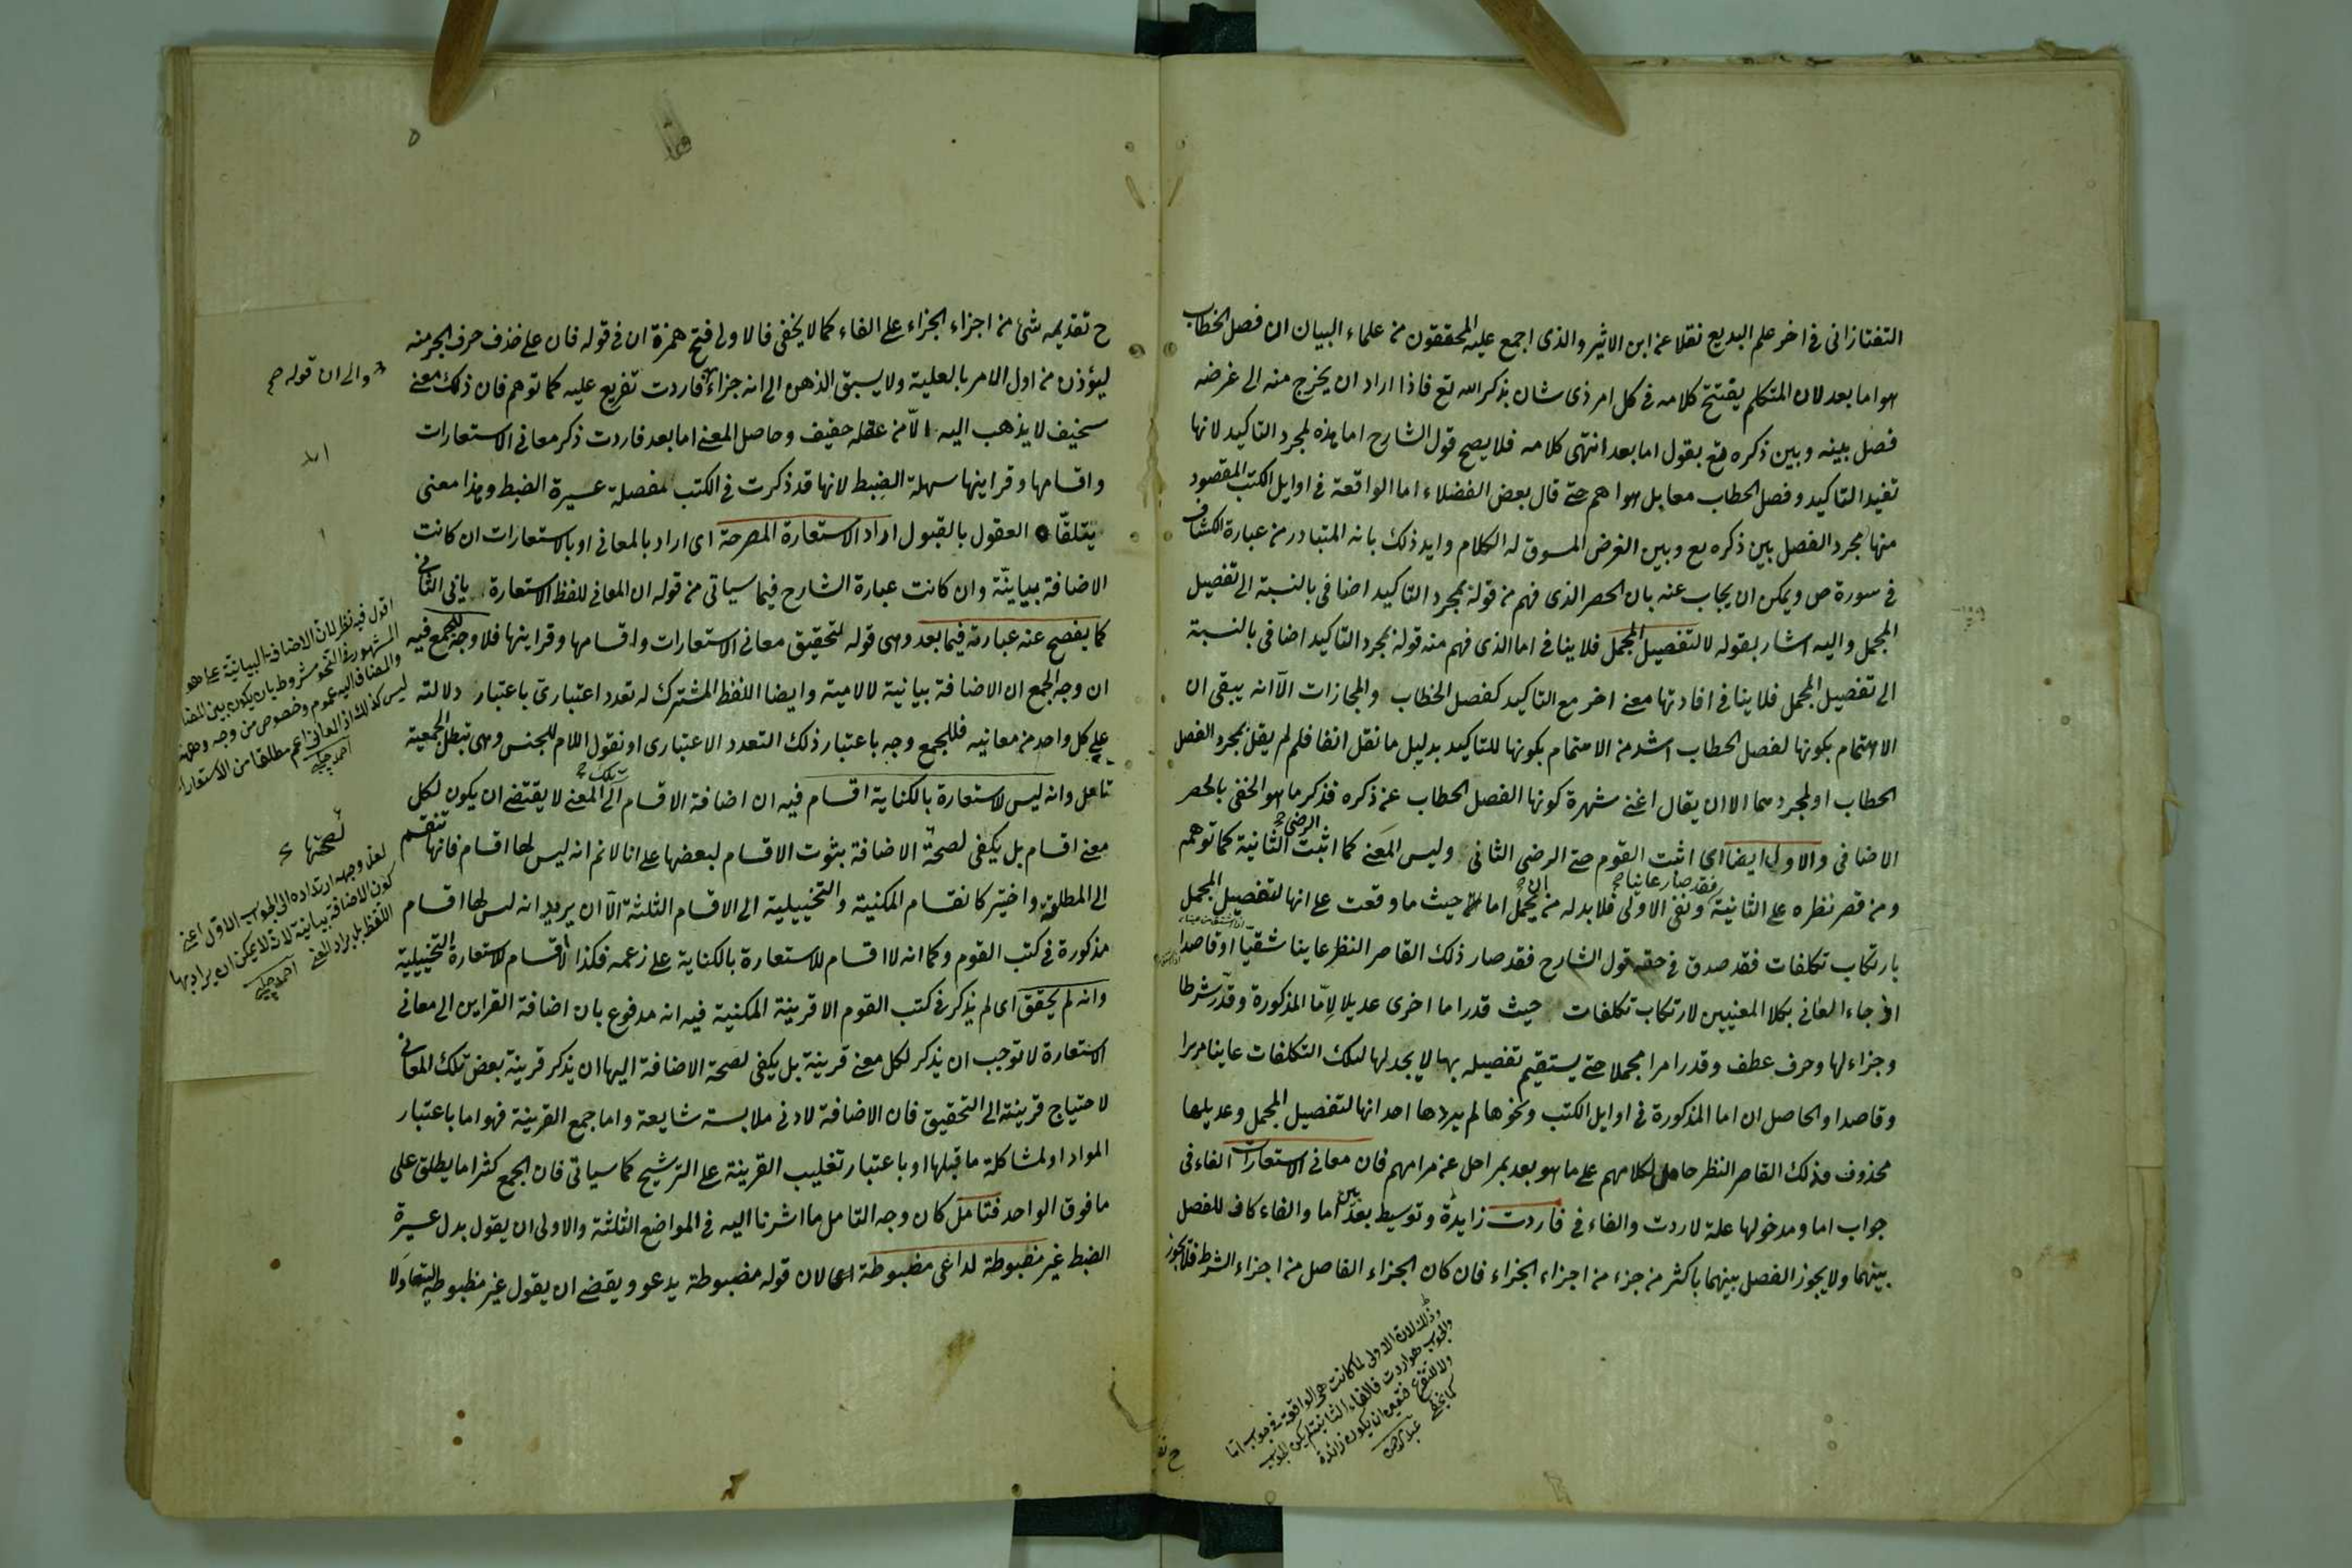 التفتازانى فى اخر علم البديع نقلا عن ابن الاثير والذى اجمع عليه المحققون من علماء البيان ان فصل الخطاب
هو اما بعد لان المتكلم يفتتح كلامه فى كل امر ذى شان بذكر الله تع فاذا اراد ان يخرج منه الى غرضه
فصل بينه وبين ذكره تع بقول اما بعد انتهى كلامه فلا يصح قول الشارح اما هذه لمجرد التاكيد لانها
تفيد التاكيد وفصل الخطاب معا بل هو اهم حتى قال بعض الفضلاء اما الواقعة فى اوايل الكتب المقصود
منها مجرد الفصل بين ذكره تع وبين الغرض المسوق له الكلام وايد ذلك بانه المتبادر من عبارة الكشاف
فى سورة ص ويمكن ان يجاب عنه بان الحصر الذى فهم من قوله لمجرد التاكيد اضافى بالنسبة الى تفصيل
المجمل واليه اشار بقوله لا لتفصيل المجمل فلا ينافى اما الذى فهم منه قوله لمجرد التاكيد اضافى بالنسبة
الى تفصيل المجمل فلا ينافى افادتها معنى اخر مع التاكيد كفصل الخطاب والمجازات الا انه يبقى ان
الاهتمام بكونها لفصل الخطاب اشد من الاهتمام بكونها للتاكيد بدليل ما نقل انفا فلم لم يقل لمجرد الفصل
الخطاب او لمجردهما الا ان يقال اغنى شهرة كونها الفصل الخطاب عن ذكره فذكر ما هو الخفى بالحصر
الاضافى والاول ايضا اى اثبت القوم حتى الرضى الثانى وليس المعنى كما اثبت الرضى الثانية كما توهم
ومن قصر نظره على الثانية ونفى الاولى فقد صار عاينا فلابد له من ان يحمل اما حيث ما وقعت على انها لتفصيل المجمل
بارتكاب تكلفات فقد صدق فى حقه قول الشارح فقد صار ذلك القاصر النظر عاينا شقيا او قاصدا
اذ جاء العانى بكلا المعنيين لارتكاب تكلفات حيث قدر اما اخرى عديلا لامّا المذكورة وقدّر شرطا
وجزاء لها وحرف عطف وقدر امرا مجملا حتى يستقيم تفصيله بها لا يجد لها لتلك التكلفات عاينا مريرا
وقاصدا والحاصل ان اما المذكورة فى اوايل الكتب ونحوها لم يردها احد انها لتفصيل المجمل وعديلها
محذوف فذلك القاصر النظر حامل لكلامهم على ما هو بعد بمراحل عن مرامهم فان معانى الاستعارات الفاء فى
جواب اما ومدخولها علة لاردت والفاء فى فاردت زايدة وتوسيط بعد بين اما والفاء كاف للفصل
بينهما ولا يجوز الفصل بينهما باكثر من جزء من اجزاء الجزاء فان كان الجزاء الفاصل من اجزاء الشرط فلا يجوز
وذلك لان الاولى لما كانت هى الواقعة فى جواب اما
والجواب هو اردت فالفاء الثانية لم يكن للجواب
ولا للتفريع فتعين ان يكون زائدة
كما يخفى
ح تق
ح تقديم شئ من اجزاء الجزاء على الفاء كما لا يخفى فالاولى فتح همزة ان فى قوله فان على حذف حرف الجر منه
ليؤذن من اول الامر بالعلية ولا يسبق الذهن الى انه جزاء فاردت تفريع عليه كما توهم فان ذلك معنى
سخيف لا يذهب اليه الّا من عقله خفيف وحاصل المعنى اما بعد فاردت ذكر معانى الاستعارات
واقسامها وقراينها سهلة الضبط لانها قد ذكرت فى الكتب مفصلة عسيرة الضبط وهذا معنى
يتلقا العقول بالقبول اراد الاستعارة المصرحة اى اراد بالمعانى او بالاستعارات ان كانت
الاضافة بيانيّة وان كانت عبارة الشارح فيما سياتى من قوله ان المعانى للفظ الاستعارة يابى الثانى
كما يفصح عنه عبارته فيما بعد وهى قوله لتحقيق معانى الاستعارات واقسامها وقراينها فلا وجه للجمع فيه
ان وجه الجمع ان الاضافة بيانية لا لامية وايضا اللفظ المشترك له تعدد اعتبارى باعتبار دلالته
على كل واحد من معانيه فللجمع وجه باعتبار ذلك التعدد الاعتبارى او نقول اللام للجنس وهى تبطل الجمعية
تامل وانه ليس لاستعارة بالكناية اقسام فيه ان اضافة الاقسام الى تلك المعنى لا يقتضى ان يكون لكل
معنى اقسام بل يكفى لصحة الاضافة بثوت الاقسام لبعضها على انا لا نم انه ليس لها اقسام فانها تنقسم
الى المطلقة واختيها كانقسام المكنية والتخييلية الى الاقسام الثلثة الّا ان يريد انه ليس لها اقسام
مذكورة فى كتب القوم وكما انه لا اقسام للاستعارة بالكناية على زعمه فكذا لا اقسام للاستعارة التخييلية
وانه لم يحقق اى لم يذكر فى كتب القوم الا قرينة المكنية فيه انه مدفوع بان اضافة القراين الى معانى
الاستعارة لا توجب ان يذكر لكل معنى قرينة بل يكفى لصحة الاضافة اليها ان يذكر قرينة بعض تلك المعانى
لاحتياج قرينته الى التحقيق فان الاضافة لادنى ملابسة شايعة واما جمع القرينة فهو اما باعتبار
المواد او لمشاكلة ما قبلها او باعتبار تغليب القرينة على الترشيح كما سياتى فان الجمع كثيرا ما يطلق على
ما فوق الواحد فتامل كان وجه التامل ما اشرنا اليه فى المواضع الثلثة والاولى ان يقول بدل عسيرة
الضبط غير مضبوطة لداعى مضبوطة اى لان قوله مضبوطة يدعو ويقضى ان يقول غير مضبوطة
والى ان قوله صح
اقول فيه نظر لان الاضافة البيانية على ما هو
المشهور فى النحو مشروط بان يكون بين المضاف
والمضاف اليه عموم وخصوص من وجه وههنا
ليس كذلك اذ المعانى اعم مطلقا من الاستعارات
احمد چلبى
لصحتها
لعل وجهه ارتداده الى الجواب الاول اعنى
كون الاضافة بيانية لانه لا يمكن ان يراد بها
اللفظ بل يراد المعنى احمد چلبى